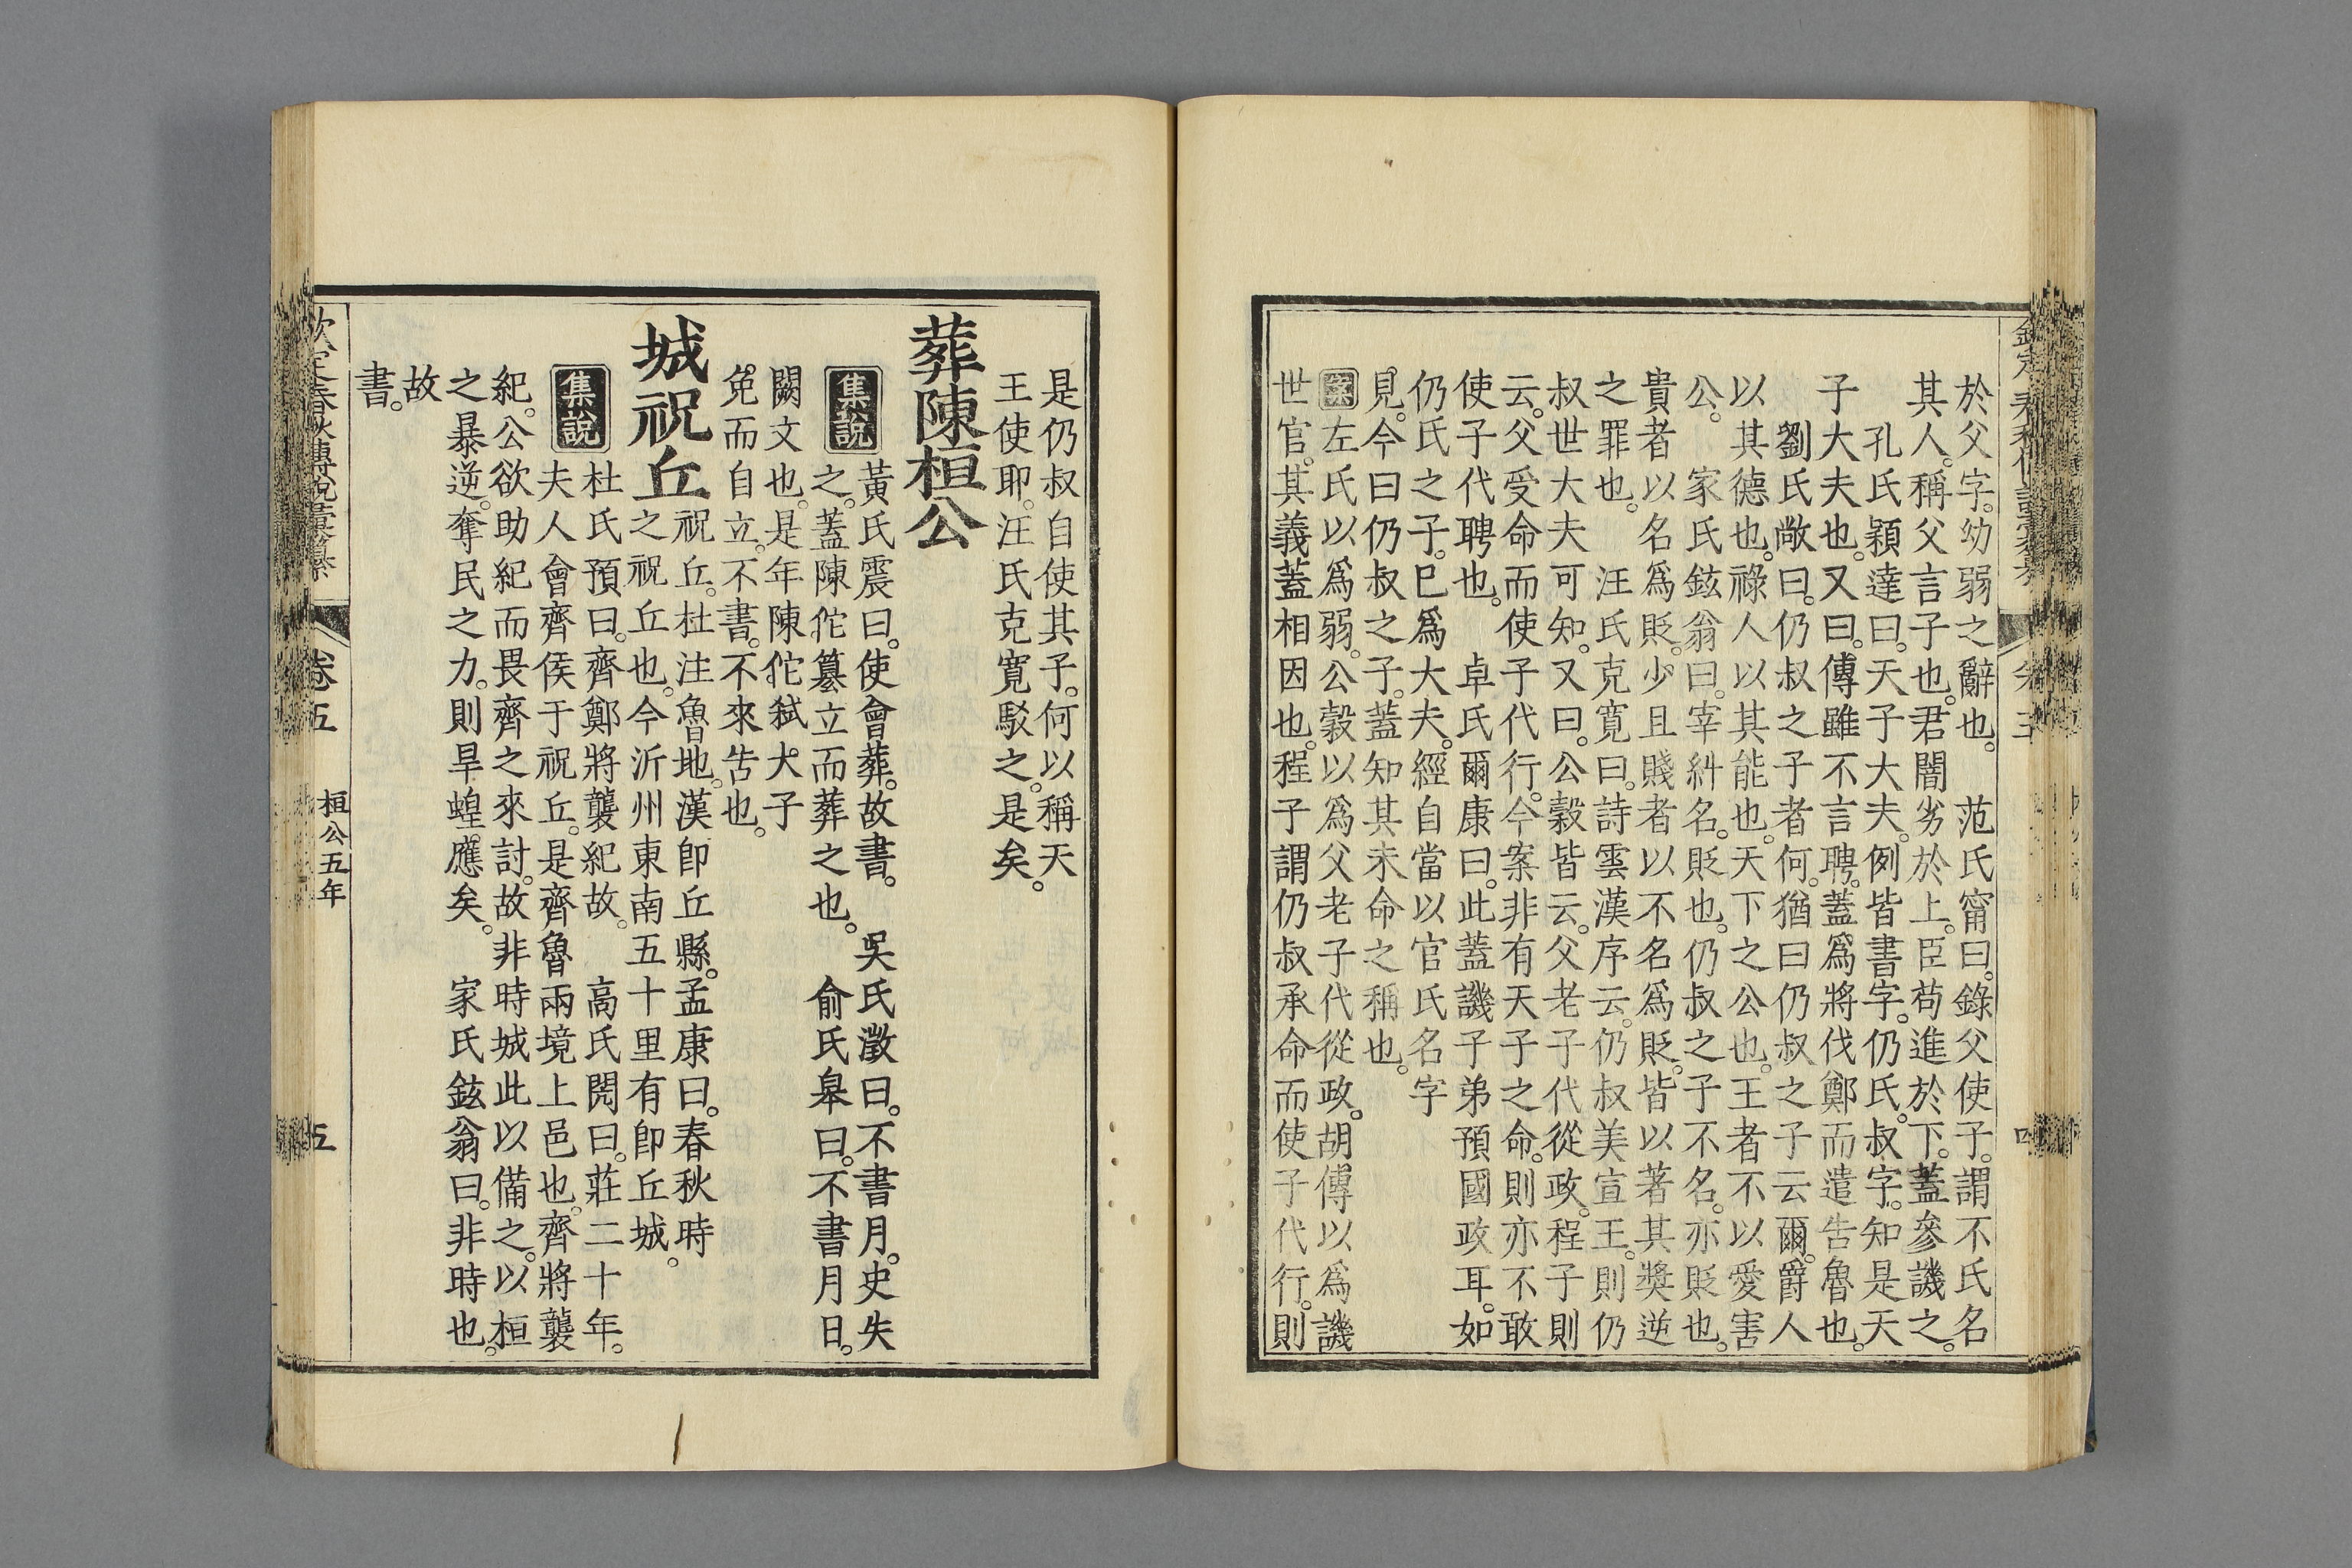 於父字。幼弱之辭也。　范氏甯曰。錄父使子。謂不氏名
其人。稱父言子也。君闇劣於上。臣苟進於下。蓋參譏之。
孔氏穎達曰。天子大夫。例皆書字。仍氏。叔字。知是天
子大夫也。又曰。傳雖不言聘。蓋爲將伐鄭而遣告魯也。
劉氏敞曰。仍叔之子者何。猶曰仍叔之子云爾。爵人
以其德也。祿人以其能也。天下之公也。王者不以愛害
公。　家氏鉉翁曰。宰糾名。貶也。仍叔之子不名。亦貶也。
貴者以名爲貶。少且賤者以不名爲貶。皆以著其獎逆
之罪也。　汪氏克寬曰。詩雲漢序云。仍叔美宣王。則仍
叔世大夫可知。又曰。公穀皆云。父老子代從政。程子則
云。父受命而使子代行。今案非有天子之命。則亦不敢
使子代聘也。　卓氏爾康曰。此蓋譏子弟預國政耳。如
仍氏之子。已爲大夫。經自當以官氏名字
見。今曰仍叔之子。蓋知其未命之稱也。
案左氏以爲弱。公穀以爲父老子代從政。胡傳以爲譏
世官。其義蓋相因也。程子謂仍叔承命而使子代行。則
是仍叔自使其子。何以稱天
王使耶。汪氏克寬駁之。是矣。
葬陳桓公
集說　黃氏震曰。使會葬。故書。　吳氏澂曰。不書月。史失
之。蓋陳佗簒立而葬之也。　俞氏皋曰。不書月日。
闕文也。是年陳佗弑大子
免而自立。不書。不來告也。
城祝丘
祝丘。杜注魯地。漢卽丘縣。孟康曰。春秋時
之祝丘也。今沂州東南五十里有卽丘城。
集說　杜氏預曰。齊鄭將襲紀故。　高氏閌曰。莊二十年。
夫人會齊侯于祝丘。是齊魯兩境上邑也。齊將襲
紀。公欲助紀而畏齊之來討。故非時城此以備之。以桓
之暴逆。奪民之力。則旱蝗應矣。　家氏鉉翁曰。非時也。
故
書。
欽定春秋傳說彙纂　卷五　桓公五年　五